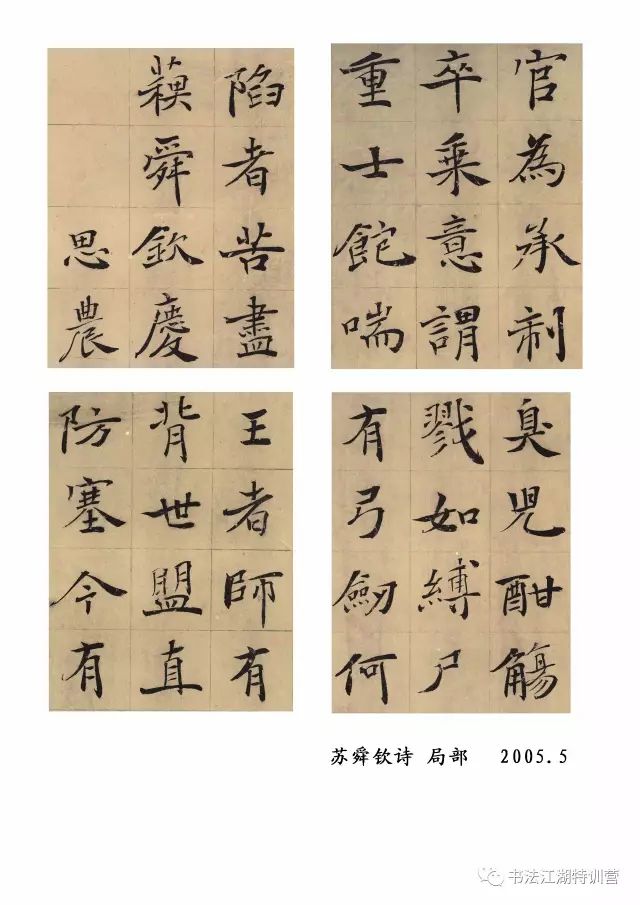 陷者苦盡
蘓舜欽慶
思農
官為承制
卒乘意謂
重士飽喘
王者師有
背世盟直
防塞今有
臭兒酣觴
戮如縛尸
有弓劒何
苏舜钦诗 局部 2005.5
书法江湖特训营